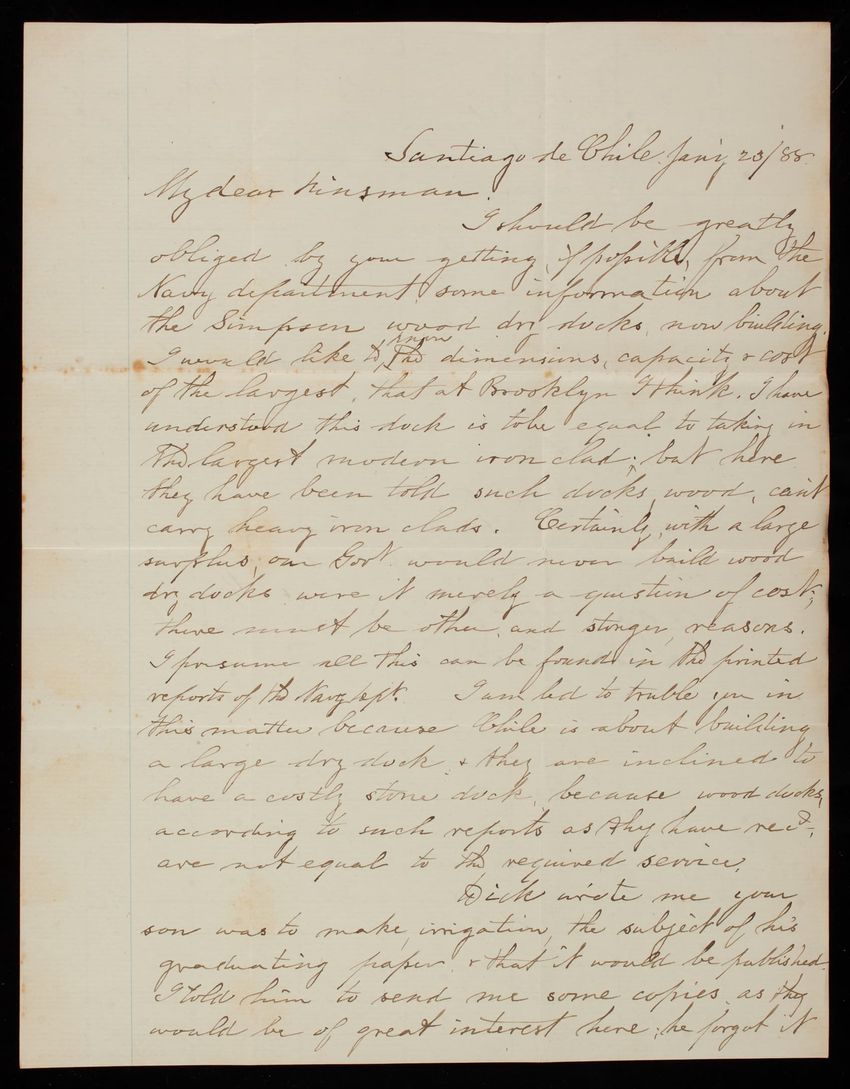 Santiago de Chile. Jan'y 23/88.
My dear Kinsman.
I should be greatly
obliged by your getting, if possible, from the
Navy department, some information about
the Simpson wood dry docks, now building.
I would like to know the dimensions, capacity & cost
of the largest, that at Brooklyn I think. I have
understood this dock is to be equal to taking in
the largest modern iron clad; but here
they have been told such docks, wood, can't
carry heavy iron clads. Certainly, with a large
surplus, our Govt. would never build wood
dry docks were it merely a question of cost;
there must be other, and stonger, reasons.
I presume all this can be found in the printed
reports of the Navy Dept. I am led to truble you in
this matter because Chile is about building
a large dry dock & they are inclined to
have a costly stone dock, because wood docks,
according to such reports as they have rec'd,
are not equal to the required service.
Dick wrote me your
son was to make, irrigation, the subject of his
graduating paper, & that it would be published.
I told him to send me some copies as they
would be of great interest here; he forgot it